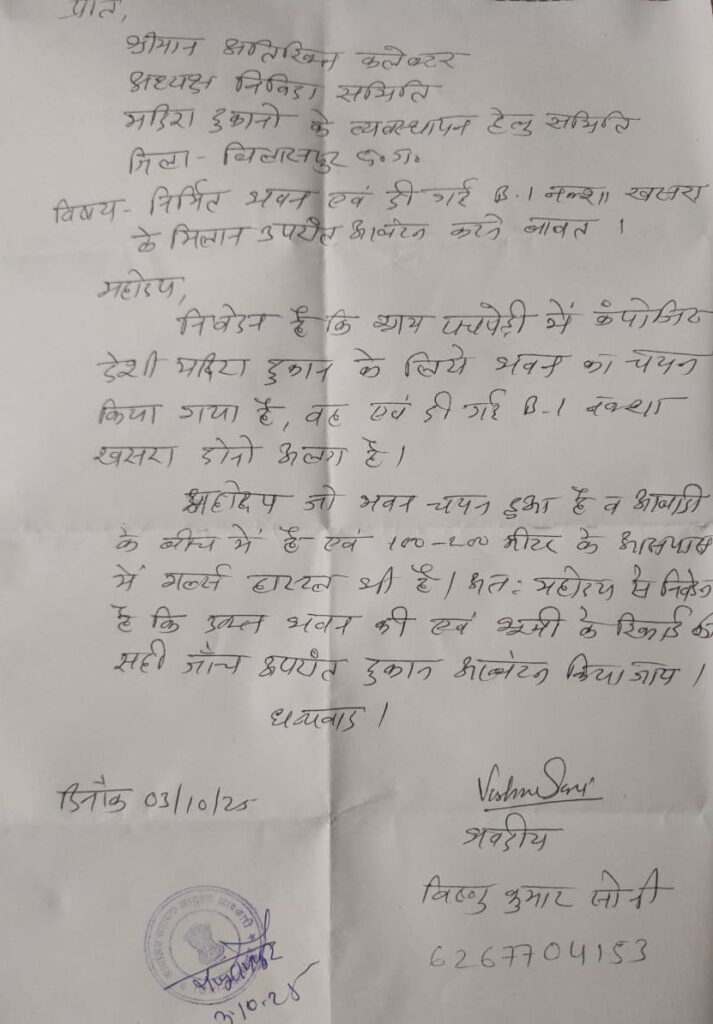 प्रति,
श्रीमान अतिरिक्त कलेक्टर
अध्यक्ष निविदा समिति
मदिरा दुकानो के व्यवस्थापन हेतु समिति
जिला - बिलासपुर छ.ग.
विषय - निर्मित भवन एवं दी गई B.1 नक्शा खसरा
के मिलान उपरांत आबंटन करने बाबत ।
महोदय,
निवेदन है कि ग्राम पचपेड़ी में कंपोजिट
देशी मदिरा दुकान के लिये भवन का चयन
किया गया है, वह एवं दी गई B-1 नक्शा
खसरा दोनो अलग है।
महोदय जो भवन चयन हुआ है व आबादी
के बीच में है एवं 100-200 मीटर के आसपास
में गर्ल्स हास्टल भी है। अत: महोदय से निवेदन
है कि उक्त भवन की एवं भूमी के रिकार्ड की
सही जाँच उपरांत दुकान आबंटन किया जाय ।
धन्यवाद ।
दिनाँक 03/10/25
Vishnu Soni
भवदीय
विष्णु कुमार सोनी
6267704153
3.10.25